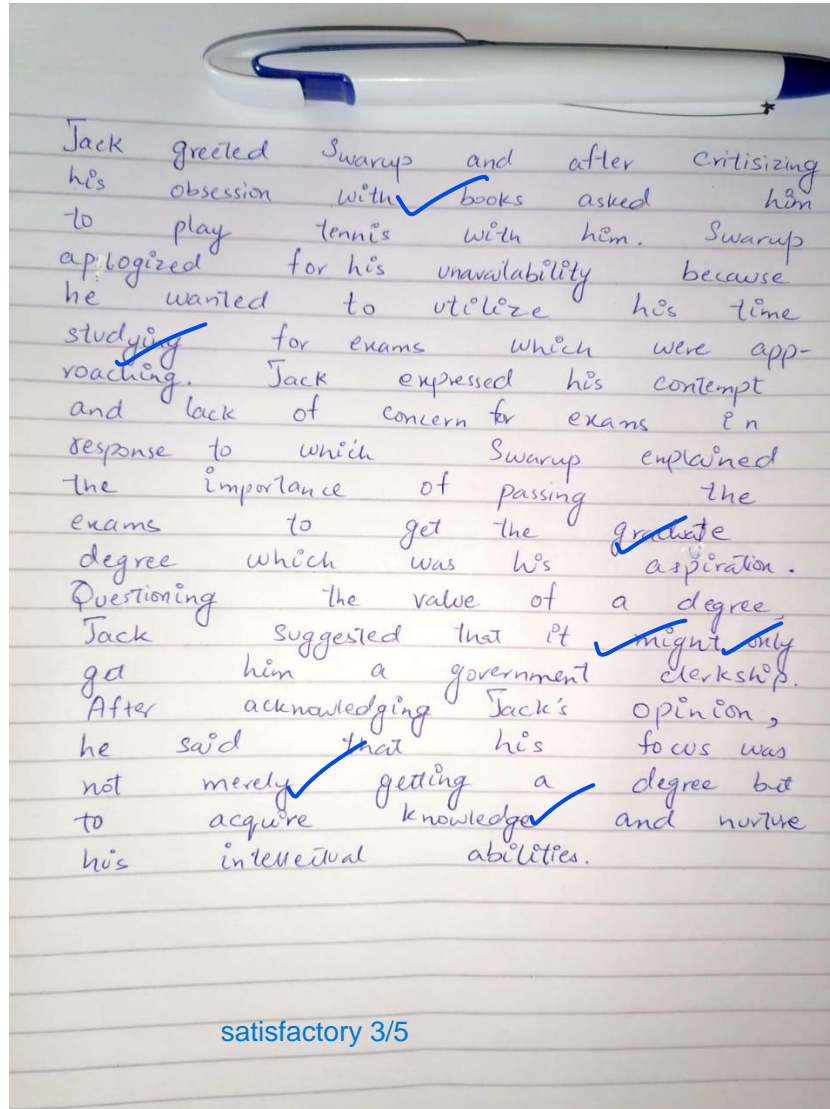 Jack greeted Swarup and after critisizing
his obsession with books asked him
to play tennis with him. Swarup
apologized for his unavailability because
he wanted to utilize his time
studying for exams which were app-
roaching. Jack expressed his contempt
and lack of concern for exams in
response to which Swarup explained
the importance of passing the
exams to get the graduate
degree which was his aspiration.
Questioning the value of a degree,
Jack suggested that it might only
get him a government clerkship.
After acknowledging Jack's opinion,
he said that his focus was
not merely getting a degree but
to acquire knowledge and nurture
his intellectual abilities.
satisfactory 3/5